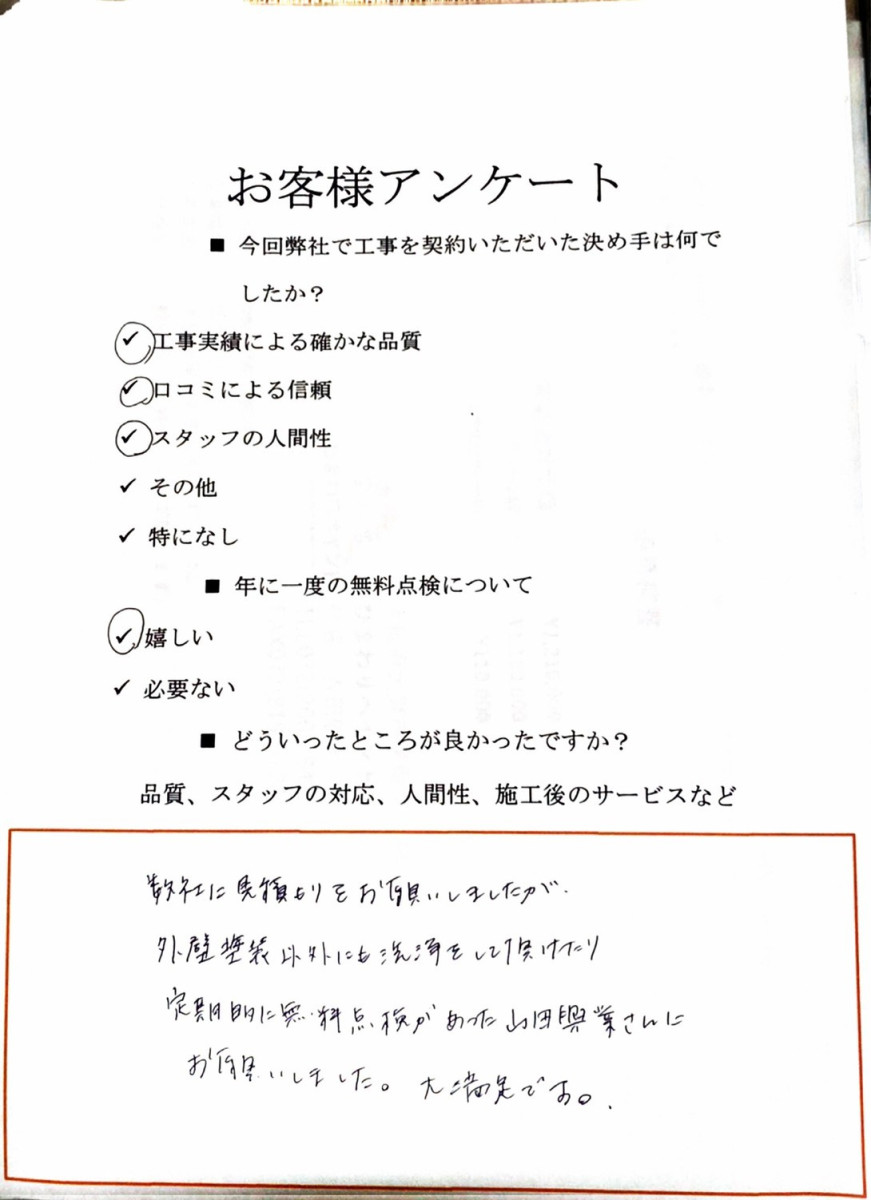 お客様アンケート
■ 今回弊社で工事を契約いただいた決め手は何で
したか？
✓ 工事実績による確かな品質
✓ 口コミによる信頼
✓ スタッフの人間性
✓ その他
✓ 特になし
■ 年に一度の無料点検について
✓ 嬉しい
✓ 必要ない
■ どういったところが良かったですか？
品質、スタッフの対応、人間性、施工後のサービスなど
数社に見積もりをお願いしましたが、
外壁塗装以外にも洗浄をして頂けたり
定期的に無料点検があった山田興業さんに
お願いしました。大満足です。